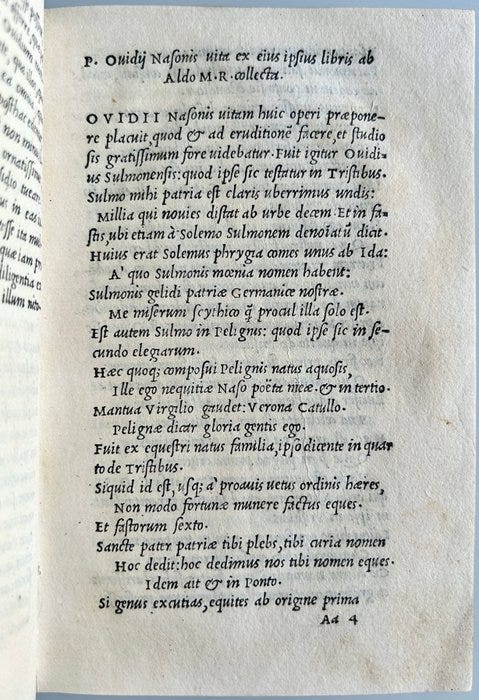 P. Ouidij Nasonis uita ex eius ipsius libris ab
Aldo M. R. collecta.
OVIDII Nasonis uitam huic operi præpone-
re placuit, quod & ad eruditionẽ facere, et studio
sis gratissimum fore uidebatur. Fuit igitur Ouidi-
us Sulmonensis: quod ipse sic testatur in Tristibus.
Sulmo mihi patria est claris uberrimus undis:
Millia qui nouies distat ab urbe decem. Et in fa-
stis, ubi etiam à Solemo Sulmonem denoĩatũ dicit.
Huius erat Solemus phrygia comes unus ab Ida:
A' quo Sulmonis mœnia nomen habent:
Sulmonis gelidi patriæ Germanice nostræ.
Me miserum scythico q̃ procul illa solo est.
Est autem Sulmo in Pelignis: quod ipse sic in se-
cundo elegiarum.
Hæc quoq; composui Pelignis natus aquosis,
Ille ego nequitiæ Naso poëta meæ. & in tertio.
Mantua Virgilio gaudet: Verona Catullo.
Pelignæ dicar gloria gentis ego.
Fuit ex equestri natus familia, ipso dicente in quar
to de Tristibus.
Siquid id est, usq; à proauis uetus ordinis hæres,
Non modo fortunæ munere factus eques.
Et fastorum sexto.
Sancte pater patriæ tibi plebs, tibi curia nomen
Hoc dedit: hoc dedimus nos tibi nomen eques.
Idem ait & in Ponto.
Si genus excutias, equites ab origine prima
Aa 4